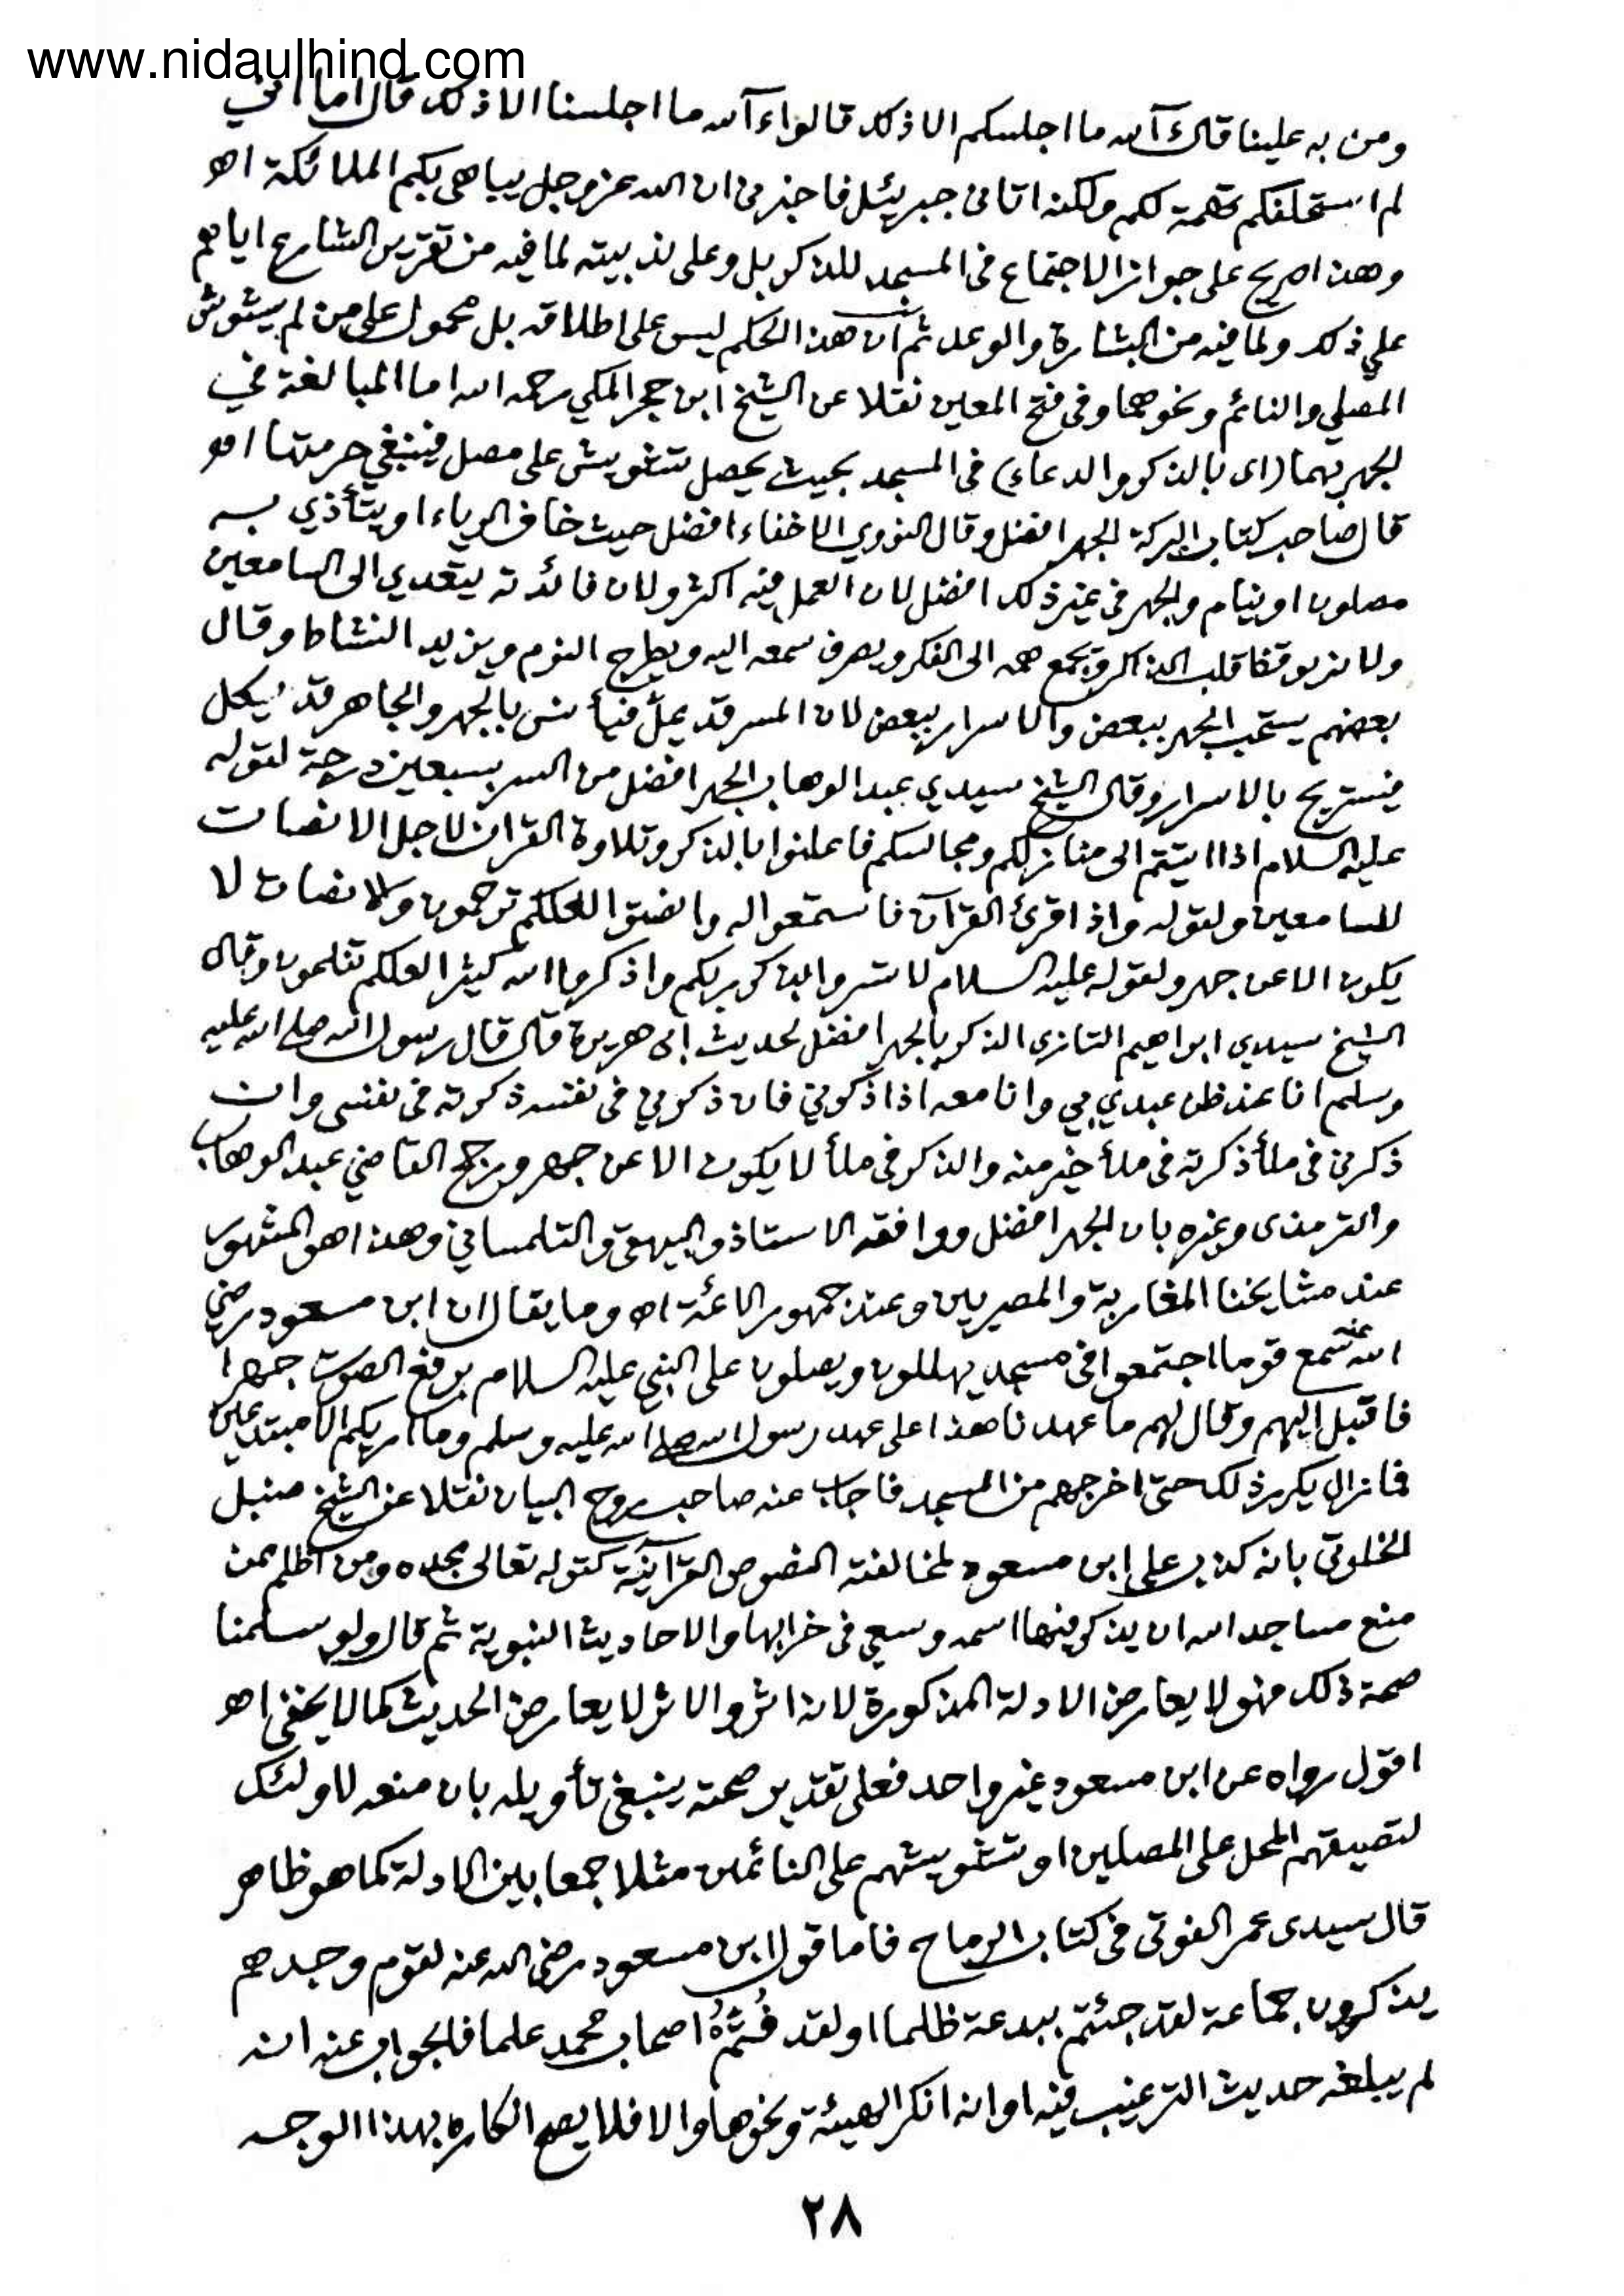 www.nidaulhind.com
ومن به علينا قال آلله ما اجلسكم الا ذلك قالوا ءآلله ما اجلسنا الا ذلك قال اما اني
لم استحلفكم تهمة لكم ولكنه اتانى جبريئل فاخبرنى ان الله عز وجل يباهى بكم الملائكة اهـ
وهذا صريح على جواز الاجتماع فى المسجد للذكر بل وعلى ندبيته لما فيه من تقرير الشارع اياهم
على ذلك ولما فيه من البشارة والوعد ثم ان هذا الحكم ليس على اطلاقه بل محمول على من لم يشوش
المصلي والنائم ونحوهما وفى فتح المعين نقلا عن الشيخ ابن حجر المكي رحمه الله اما المبالغة في
الجهر بهما (اى بالذكر والدعاء) فى المسجد بحيث يحصل تشويش على مصل فينبغي حرمتها اهـ
قال صاحب كتاب البركة الجهر افضل وقال النووي الاخفاء افضل حيث خاف الرياء او يتأذي به
مصلون او نيام والجهر فى غير ذلك افضل لان العمل فيه اكثر ولان فائدته يتعدي الى السامعين
ولانه يوقظ قلب الذاكر ويجمع همه الى الفكر ويصرف سمعه اليه ويطرح النوم ويزيد النشاط وقال
بعضهم يستحب الجهر ببعض والاسرار ببعض لان المسر قد يملّ فيأنس بالجهر والجاهر قد يكل
فيستريح بالاسرار وقال الشيخ سيدي عبد الوهاب الجهر افضل من السر بسبعين درجة لقوله
عليه السلام اذا اتيتم الى منازلكم ومجالسكم فاعلنوا بالذكر وتلاوة القرآن لاجل الانصات
للسامعين ولقوله واذا قرئ القرآن فاستمعوا له وانصتوا لعلكم ترحمون والانصات لا
يكون الا عن جهر ولقوله عليه السلام لا تسروا بذكر ربكم واذكروا الله كثيرا لعلكم تفلحون وقال
الشيخ سيدي ابراهيم التازى الذكر بالجهر افضل لحديث ابى هريرة قال قال رسول الله صلى الله عليه
وسلم انا عند ظن عبدي بي وانا معه اذا ذكرني فان ذكرني فى نفسه ذكرته فى نفسى وان
ذكرني فى ملأ ذكرته فى ملأ خير منه والذكر فى ملأ لا يكون الا عن جهر ورجح القاضي عبد الوهاب
والترمذى وغيره بان الجهر افضل ووافقه الاستاذ والبيهقى والتلمساني وهذا هو المشهور
عند مشايخنا المغاربة والمصريين وعند جمهور الائمة اهـ وما يقال ان ابن مسعود رضي
الله عنه سمع قوما اجتمعوا فى مسجد يهللون ويصلون على النبي عليه السلام برفع الصوت جهرا
فاقبل اليهم وقال لهم ما عهدنا هذا على عهد رسول الله صلى الله عليه وسلم وما اريكم الا مبتدعين
فما زال يكرر ذلك حتى اخرجهم من المسجد فاجاب عنه صاحب روح البيان نقلا عن الشيخ سنبل
الخلوتى بانه كذب على ابن مسعود لمخالفته النصوص القرآنية كقوله تعالى مجده ومن اظلم ممن
منع مساجد الله ان يذكر فيها اسمه وسعى فى خرابها والاحاديث النبوية ثم قال ولو سلمنا
صحة ذلك فهو لا يعارض الادلة المذكورة لانه اثر والاثر لا يعارض الحديث كما لا يخفى اهـ
اقول رواه عن ابن مسعود غير واحد فعلى تقدير صحته ينبغى تأويله بان منعه لاولئك
لتضييقهم المحل على المصلين او تشويشهم على النائمين مثلا جمعا بين الادلة كما هو ظاهر
قال سيدى عمر الفوتى فى كتاب الرماح فاما قول ابن مسعود رضى الله عنه لقوم وجدهم
يذكرون جماعة لقد جئتم ببدعة ظلما او لقد فُتُمْ اصحاب محمد علما فالجواب عنه انه
لم يبلغه حديث الترغيب فيه او انه انكر الهيئة ونحوها والا فلا يصح انكاره بهذا الوجه
٢٨